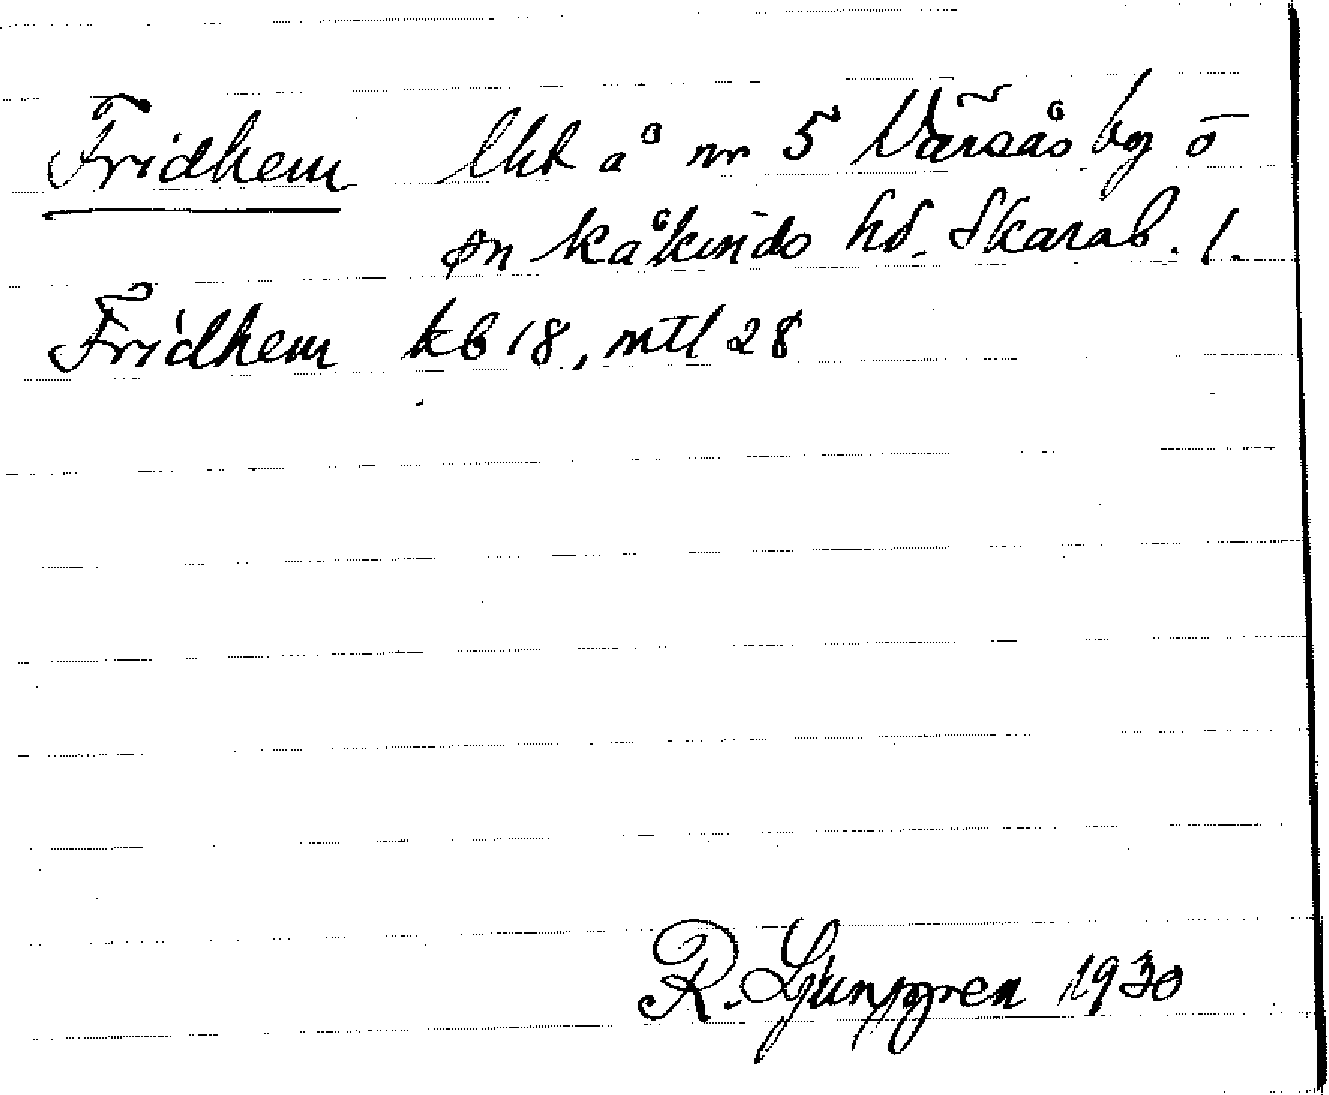 Fridhem lht å nr 5 Värsås by o
sn Kåkinds hd. Skarab. l.
Fridhem kb 18, mtl 28
R. Ljunggren 1930